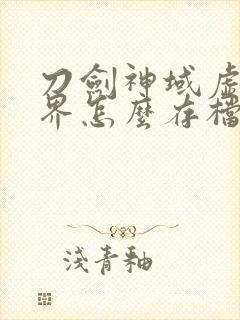 刀劍神域虛
界怎麼存檔
淺青釉